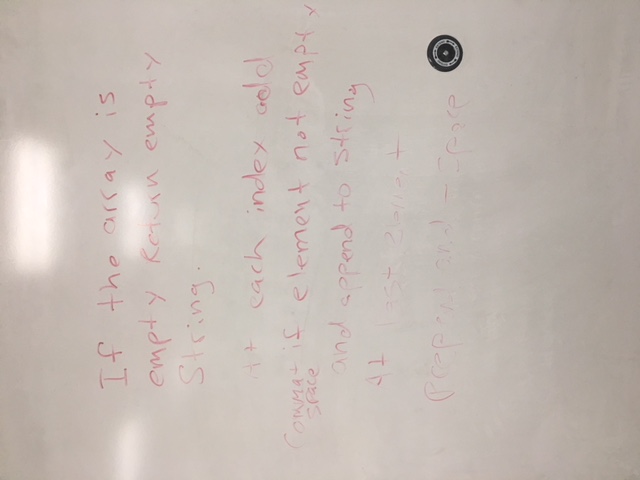 If the array is
empty Return empty
String.
At each index add
Comma + if element not empty
space
and append to string
At last Element
prepend and - Space